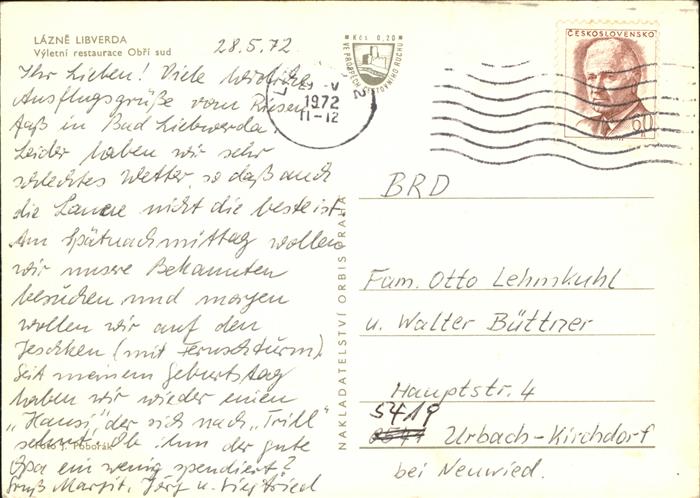 LÁZNĚ LIBVERDA
Výletní restaurace Obří sud
28.5.72
Ihr Lieben! Viele herzliche
Ausflugsgrüße vom Riesen-
faß in Bad Liebwerda.
Leider haben wir sehr
schlechtes Wetter, so daß auch
die Laune nicht die beste ist.
Am Spätnachmittag wollen
wir unsere Bekannten
besuchen und morgen
wollen wir auf den
Jeschken (mit Fernsehturm).
Seit meinem Geburtstag
haben wir wieder einen
"Hansi", der sich nach "Trill"
sehnt. Ob ihm der gute
Foto J. Pobořák
Opa ein wenig spendiert?
Gruß Margit, Jörg u. Siegfried
Kčs 0,20
VE PROSPĚCH CESTOVNÍHO RUCHU
1972
11-12
ČESKOSLOVENSKO
60
NAKLADATELSTVÍ ORBIS PRAHA
BRD
Fam. Otto Lehmkuhl
u. Walter Büttner
Hauptstr. 4
5419
Urbach-Kirchdorf
bei Neuwied.